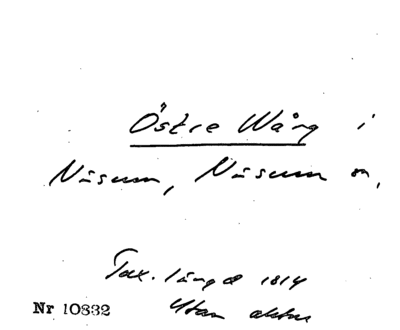 Östre Wång i
Näsum, Näsum sn,
Tax. längd 1814
Utan aktnr
Nr 10832